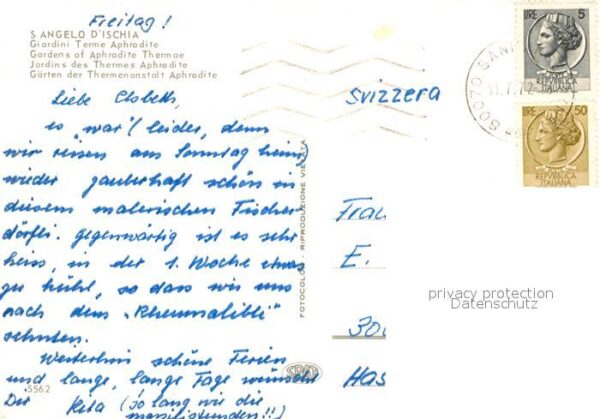 Freitag!
S. ANGELO D'ISCHIA
Giardini Terme Aphrodite
Gardens of Aphrodite Thermae
Jardins des Thermes Aphrodite
Gärten der Thermenanstalt Aphrodite
Liebe Elsbeth,
es "war" (leider, denn
wir reisen am Sonntag heim)
wieder zauberhaft schön in
diesem malerischen Fischer
dörfli. Gegenwärtig ist es sehr
heiss, in der 1. Woche etwas
zu kühl, so dass wir uns
nach dem "Rheumalibli"
sehnten.
Weiterhin schöne Ferien
und lange, lange Tage wünscht
Dir Rita (so lang wie die
5562
FOTOCOLOR - RIPRODUZIONE VIETATA
Svizzera
LIRE 5
REPVBBLICA
ITALIANA
LIRE 50
REPVBBLICA
ITALIANA
80070
Frau
E.
privacy protection
Datenschutz
300
Has